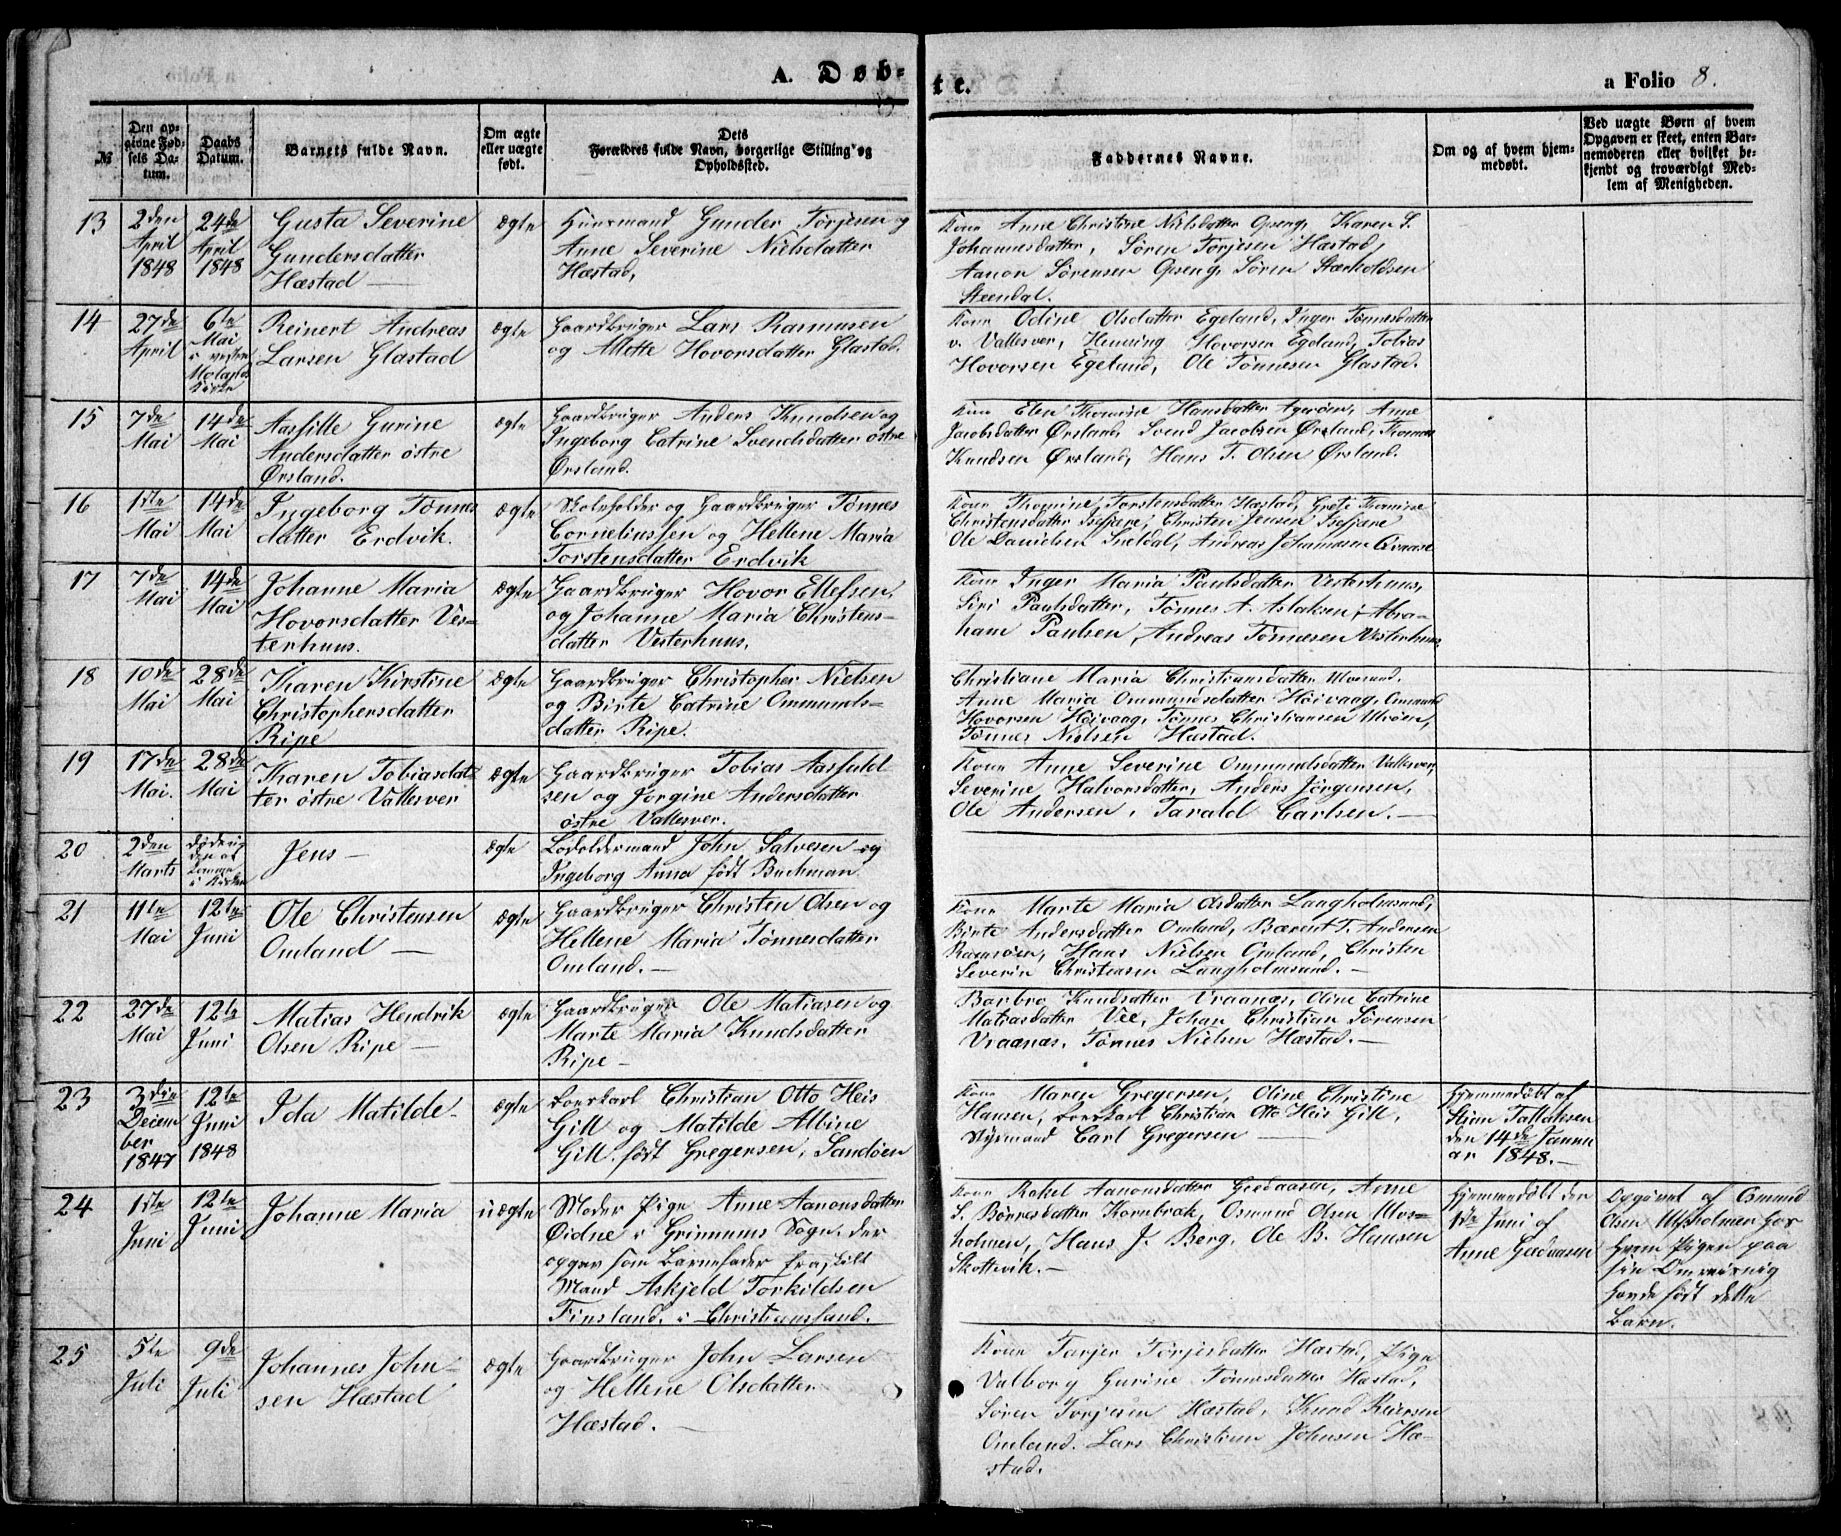 A. Døb-
te.
a Folio 8.
№
Den op-
givne Fød-
sels Da-
tum.
Daabs
Datum.
Barnets fulde Navn.
Om ægte
eller uægte
født.
Dets
Forældres fulde Navn, borgerlige Stilling og
Opholdssted.
Faddernes Navne.
Om og af hvem hjem-
medøbt.
Ved uægte Børn af hvem
Opgaven er skeet, enten Bar-
nemoderen eller hvilket be-
kjendt og troværdigt Med-
lem af Menigheden.
13
2den
April
1848
24de
April
1848
Gusta Severine
Gundersdatter
Hæstad —
ægte
Huusmand Gunder Torjesen og
Anne Severine Nielsdatter
Hæstad,
Kone Anne Christine Nielsdatter Opseng, Karen S.
Johannesdatter, Sören Torjesen Hæstad,
Aanon Sörensen Opseng, Sören Stærkoldsen
Steendal.
14
27de
April
6te
Mai
i vestre
Molands
Kirke
Reinert Andreas
Larsen Glastad
ægte
Gaardbruger Lars Rasmusen
og Allette Hovorsdatter Glastad.
Kone Odine Olsdatter Egeland, Inger Tönnesdatter
v. Vallesver, Henning Hovorsen Egeland, Tobias
Hovorsen Egeland, Ole Tönnesen Glastad.
15
7de
Mai
14de
Mai
Aasille Gurine
Andersdatter östre
Örsland.
ægte
Gaardbruger Anders Knudsen og
Ingeborg Catrine Svendsdatter östre
Örsland.
Kone Elen Thomine Hansdatter Ageröen, Anne
Jacobsdatter Örsland, Svend Jacobsen Örsland, Thomas
Knudsen Örsland, Hans T. Olsen Örsland.
16
1ste
Mai
14de
Mai
Ingeborg Tönnes
datter Erdvik.
ægte
Skoleholder og Gaardbruger Tönnes
Corneliussen og Hellene Maria
Torstensdatter Erdvik
Kone Thomine Torstensdatter Hæstad, Grete Thomine
Christensdatter Isefjære, Christen Jensen Isefjære
Ole Danielsen Sneldal, Andreas Johannesen Qvaase
17
7de
Mai
14de
Mai
Johanne Maria
Hovorsdatter Ves-
terhuus.
ægte
Gaardbruger Hovor Ellefsen,
og Johanne Maria Christens-
datter Vesterhuus,
Kone Inger Maria Paulsdatter Vesterhuus,
Siri Paulsdatter, Tönnes A. Aslaksen, Abra-
ham Paulsen, Andreas Tönnesen Vesterhuus
18
10de
Mai
28de
Mai
Karen Kirstine
Christophersdatter
Ripe
ægte
Gaardbruger Christopher Nielsen
og Birte Catrine Ommunds-
datter Ripe.
Christiane Maria Christiansdatter Ulvesund.
Anne Maria Ommundsdatter Höivaag, Ommund
Hovorsen Höivaag, Tönnes Christiansen Ulvöen,
Tönnes Nielsen Hæstad.
19
17de
Mai.
28de
Mai
Karen Tobiasdat-
ter östre Vallesver
ægte
Gaardbruger Tobias Aasuld-
sen og Jörgine Andersdatter
östre Vallesver.
Kone Anne Severine Ommundsdatter Vallesver,
Severine Halvorsdatter, Anders Jörgensen,
Ole Andersen, Tarald Carlsen. —
20
2den
Marts
döde uden at
komme
i Kirken
Jens —
ægte
Lodsoldermand John Salvesen og
Ingeborg Anna födt Buchman
21
11te
Mai
12te
Juni
Ole Christensen
Omland —
ægte
Gaardbruger Christen Olsen og
Hellene Maria Tönnesdatter
Omland. —
Kone Marte Maria Olsdatter Langholmsund,
Birte Andersdatter Omland, Bærent T. Andersen
Ramsöen, Hans Nielsen Omland, Christen
Severin Christensen Langholmsund. —
22
27de
Mai
12te
Juni
Matias Hendrik
Olsen Ripe —
ægte
Gaardbruger Ole Matiasen og
Marte Maria Knudsdatter
Ripe —
Barbro Knudsdatter Vraanæs, Oline Catrine
Matiasdatter Vee, Johan Christian Sörensen
Vraanæs, Tönnes Nielsen Hæstad. —
23
3die
Decem
ber
1847
12te
Juni
1848
Ida Matilde —
ægte
Loeskarl Christian Otto Heis
Gill og Matilde Albine
Gill. födt Gregersen, Sandöen
Kone Maren Gregersen, Oline Christine
Hansen, Loeskarl Christian Otto Heis Gill,
Styrmand Carl Gregersen —
Hjemmedöbt af
Stian Tallaksen
den 14de Janu
ar 1848. —
24
1ste
Juni
12te
Juni
Johanne Maria
uægte
Moder Pige Anne Aanonsdatter
Öidne i Grimnæs Sogn, der
opgav som Barnefader fraskilt
Mand Askjeld Torkildsen
Finsland, i Christianssand.
Kone Rakel Aanonsdatter Geedaasen, Anne
S. Börresdatter Kornbrak, Osmund Olsen Ulvs-
holmen, Hans J. Berg, Ole B. Hansen
Skottevik. —
Hjemmedöbt den
1ste Juni af
Anne Geedaasen
Opgivet af Osmund
Olsen Ulfsholmen hos
hvem Pigen paa
sin Omreisnig
havde födt dette
Barn.
25
5te
Juli
9de
Juli
Johannes John-
sen Hæstad
ægte
Gaardbruger John Larsen
og Hellene Olsdatter
Hæstad. —
Kone Tarjer Torjesdatter Hæstad, Pige
Valborg Gurine Tönnesdatter Hæstad,
Sören Torjesen Hæstad, Knud Reiersen
Omland, Lars Christian Johnsen Hæ-
stad.